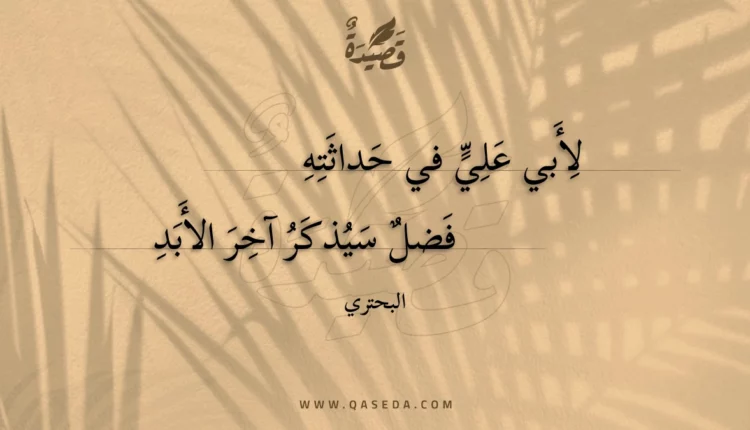 قَصِيْدَةٌ
لِأَبي عَلِيٍّ في حَداثَتِهِ
فَضلٌ سَيُذكَرُ آخِرَ الأَبَدِ
البحتري
WWW.QASEDA.COM